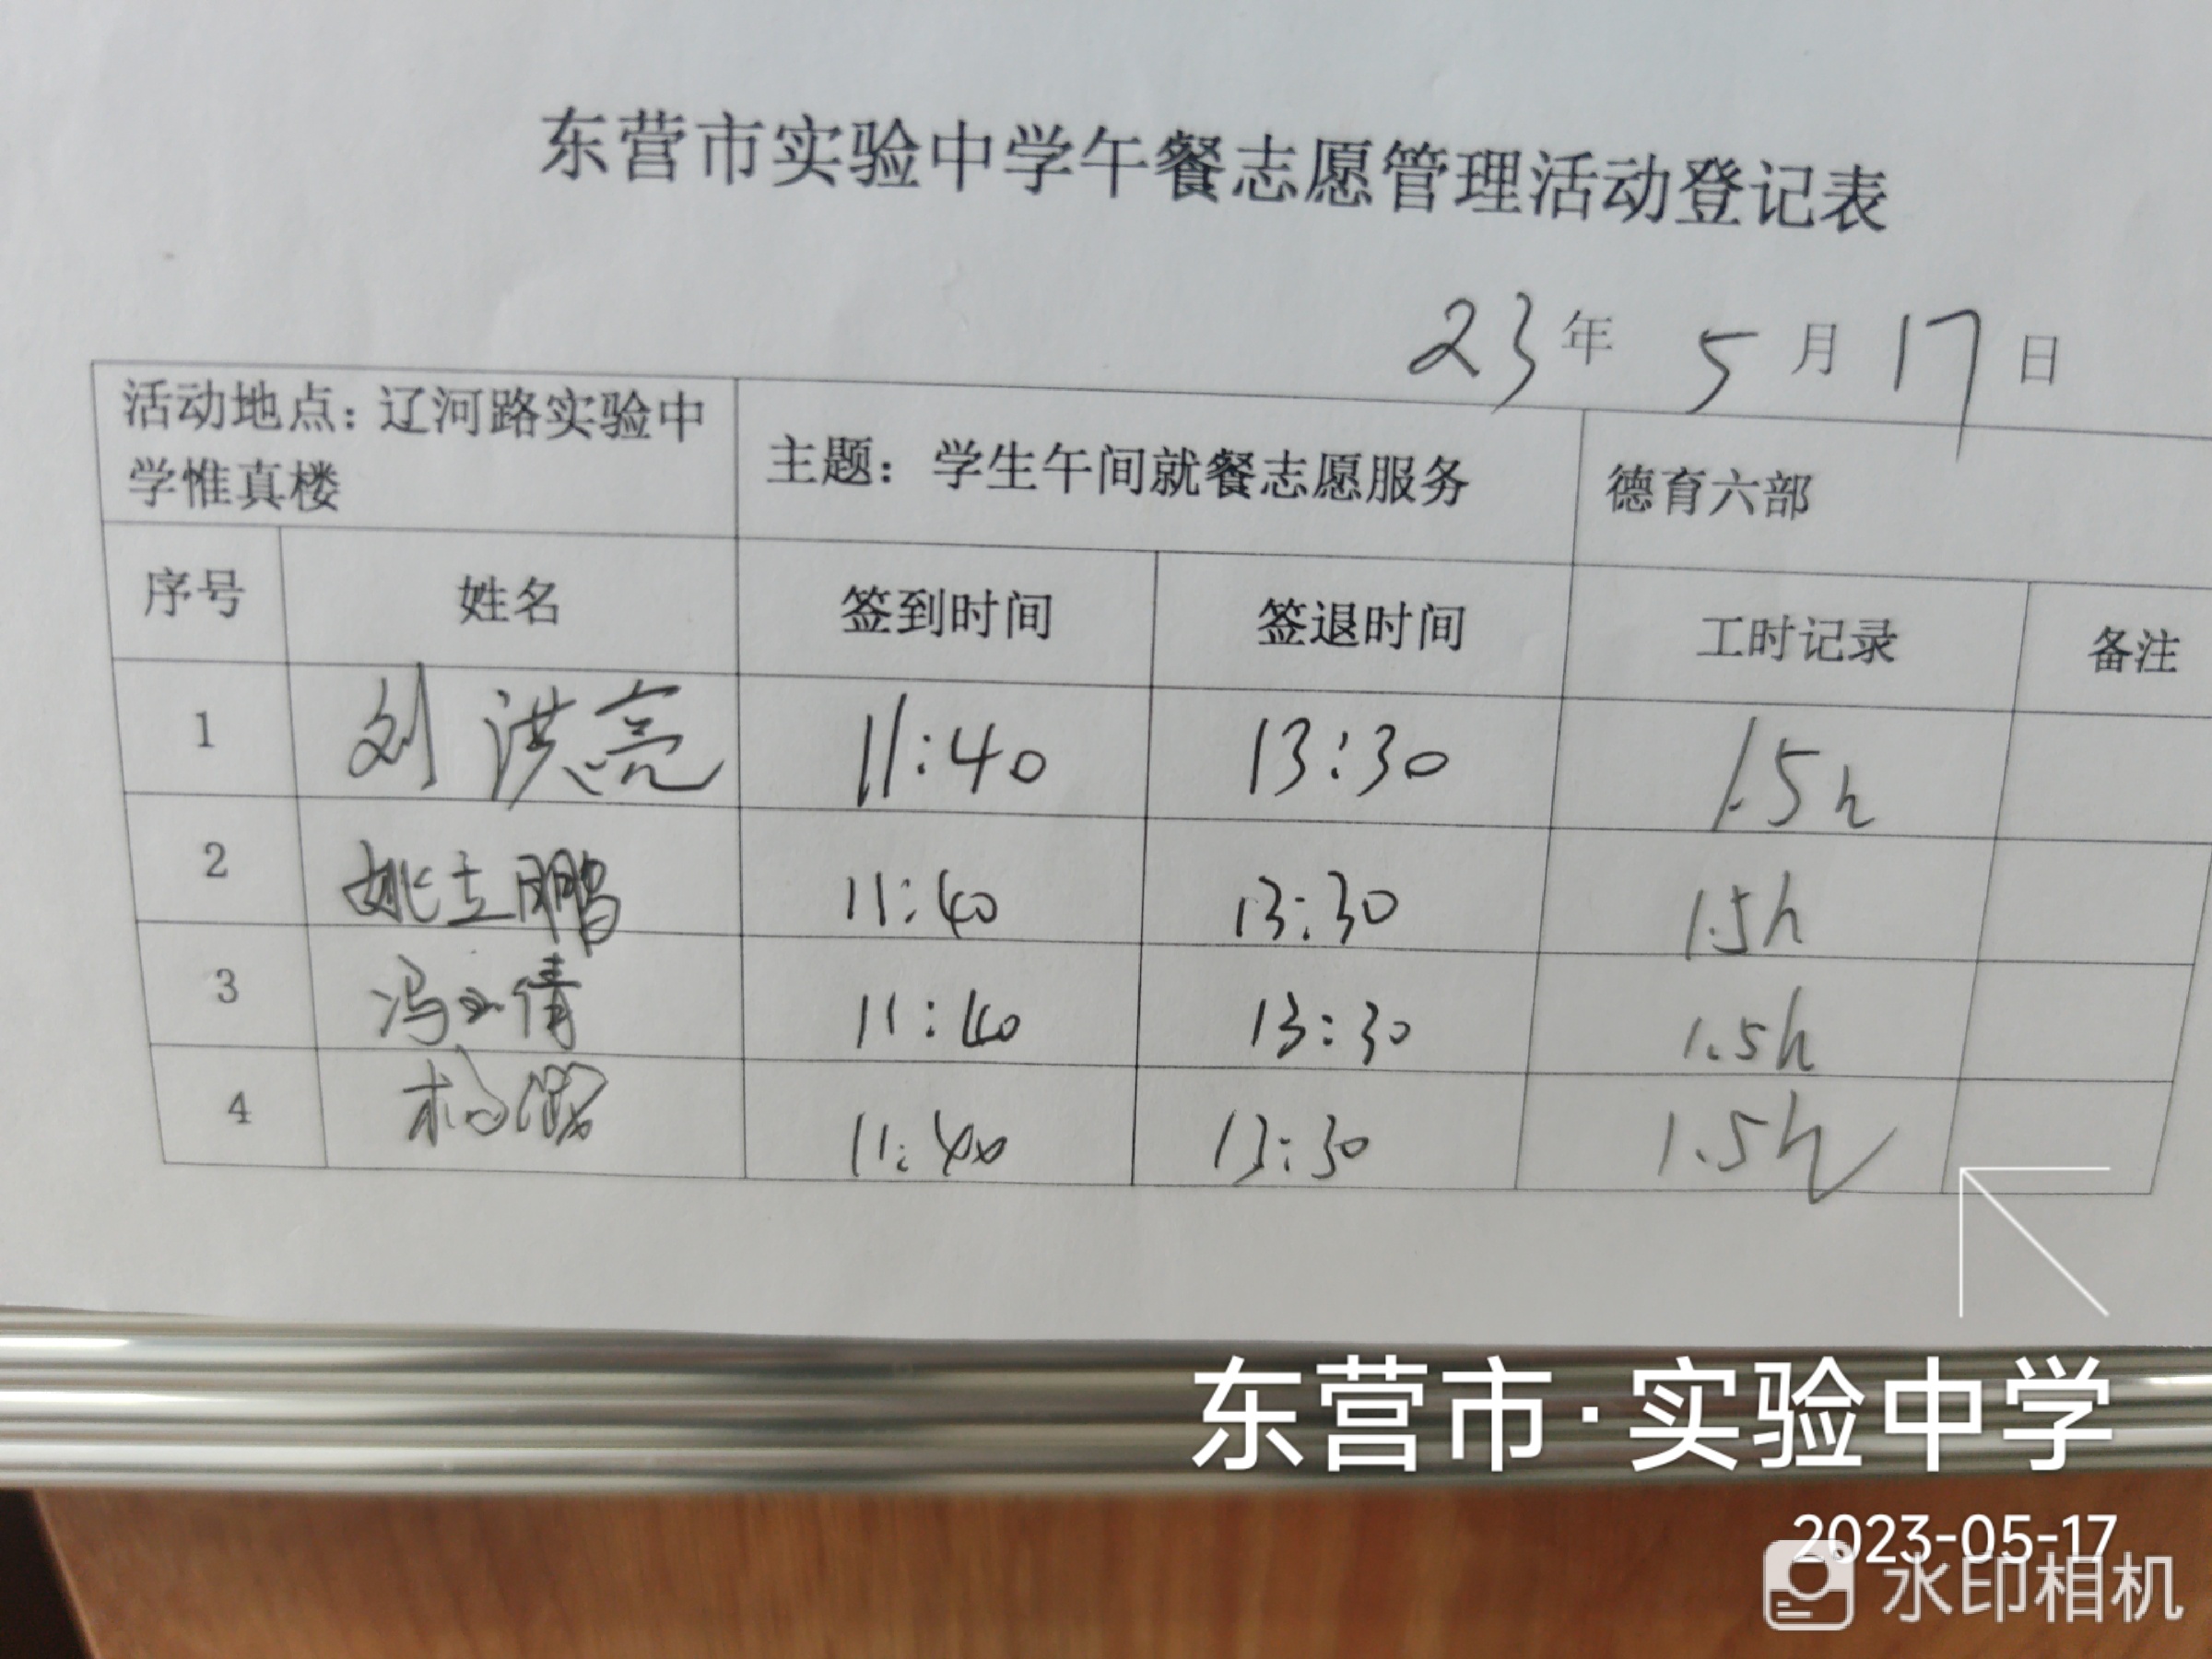 东营市实验中学午餐志愿管理活动登记表
23年 5月17日
活动地点：辽河路实验中学惟真楼 主题：学生午间就餐志愿服务 德育六部
序号 姓名 签到时间 签退时间 工时记录 备注
1 刘洪亮 11:40 13:30 1.5h
2 姚立鹏 11:40 13:30 1.5h
3 冯 倩 11:40 13:30 1.5h
4 杨 11:40 13:30 1.5h
东营市·实验中学
2023-05-17
水印相机